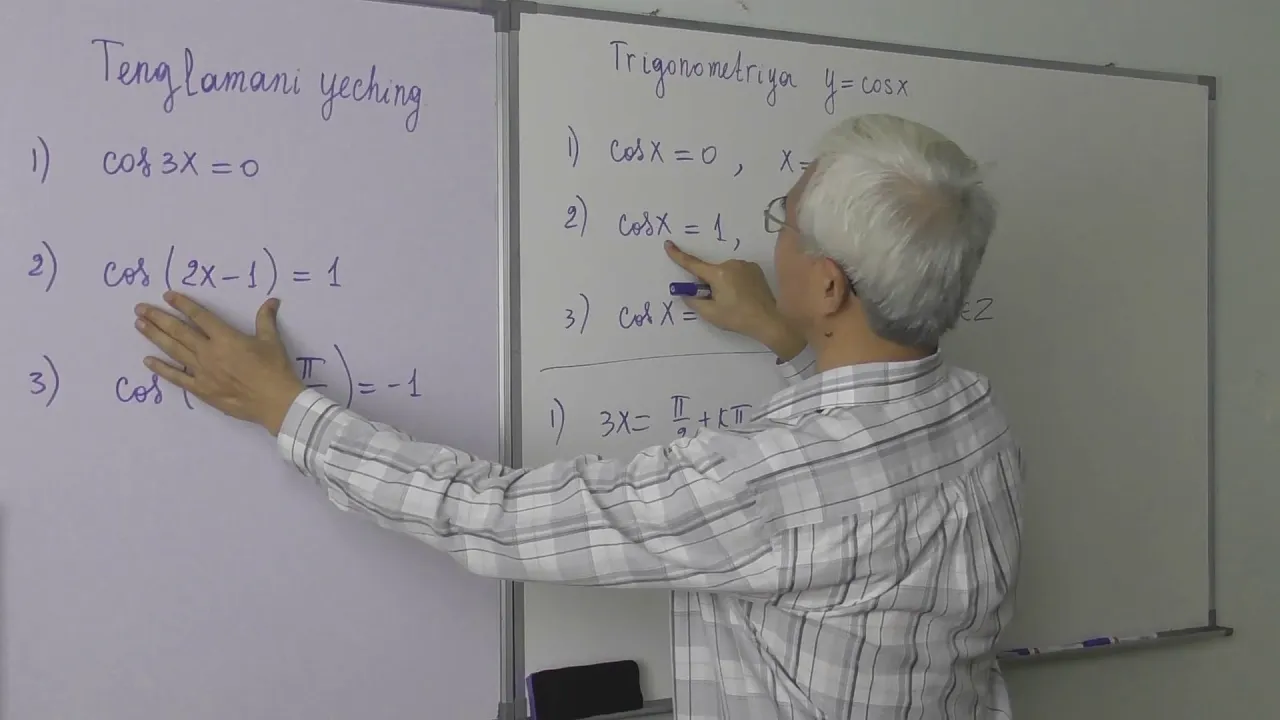 Tenglamani yeching
1) cos 3x = 0
2) cos (2x - 1) = 1
3) cos ( π ) = -1
Trigonometriya y = cos x
1) cos x = 0 , x =
2) cos x = 1,
3) cos x = ∈ Z
1) 3x = π/2 + kπ